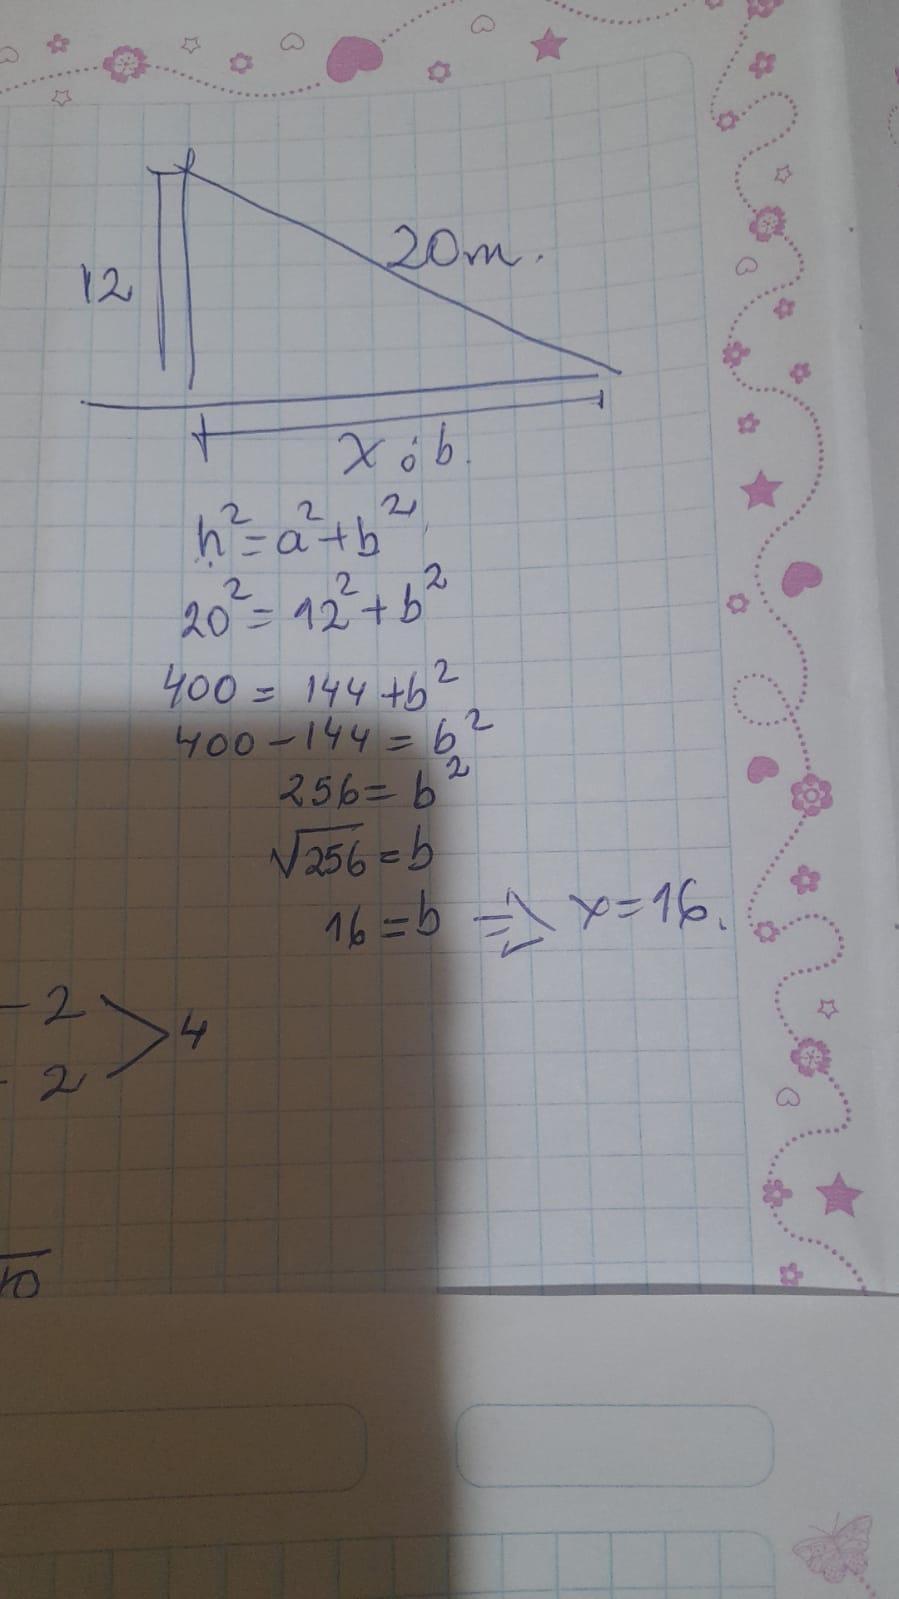 12
20m.
x ó b.
h²=a²+b²
20²=12²+b²
400=144+b²
400-144=b²
256=b²
√256=b
16=b ⇒ x=16.
- 2
4
- 2
10